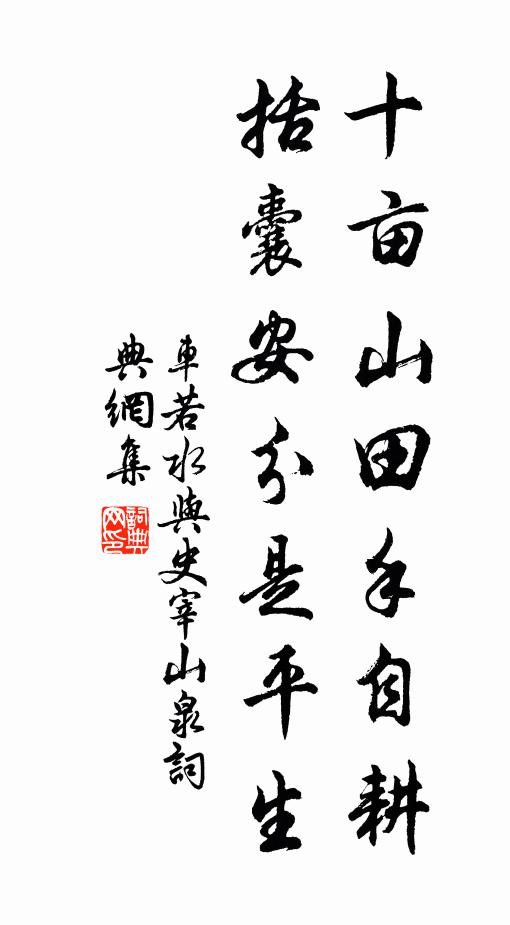 十亩山田手自耕
括囊安分是平生
車若水與史宰山泉詞
典網集
詞典網印